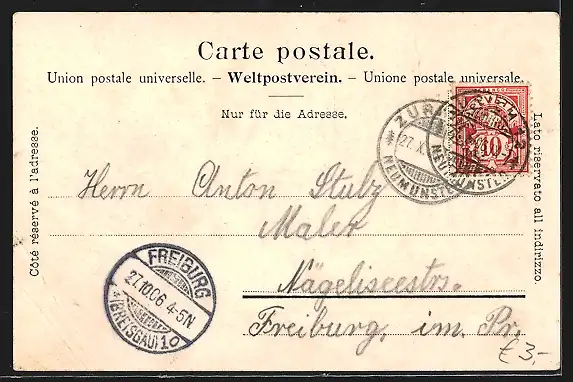 Carte postale.
Union postale universelle. – Weltpostverein. – Unione postale universale.
Nur für die Adresse.
Côté réservé à l'adresse.
Lato riservato all indirizzo.
10
ZÜR
27.X
NEUMÜNSTE
NEUMÜNSTE
Herrn Anton Stulz
Maler
Nägeliseestrs.
Freiburg, im. Pr.
FREIBURG
27.10.06 4-5N
*(BREISGAU) 1o
€ 3,-